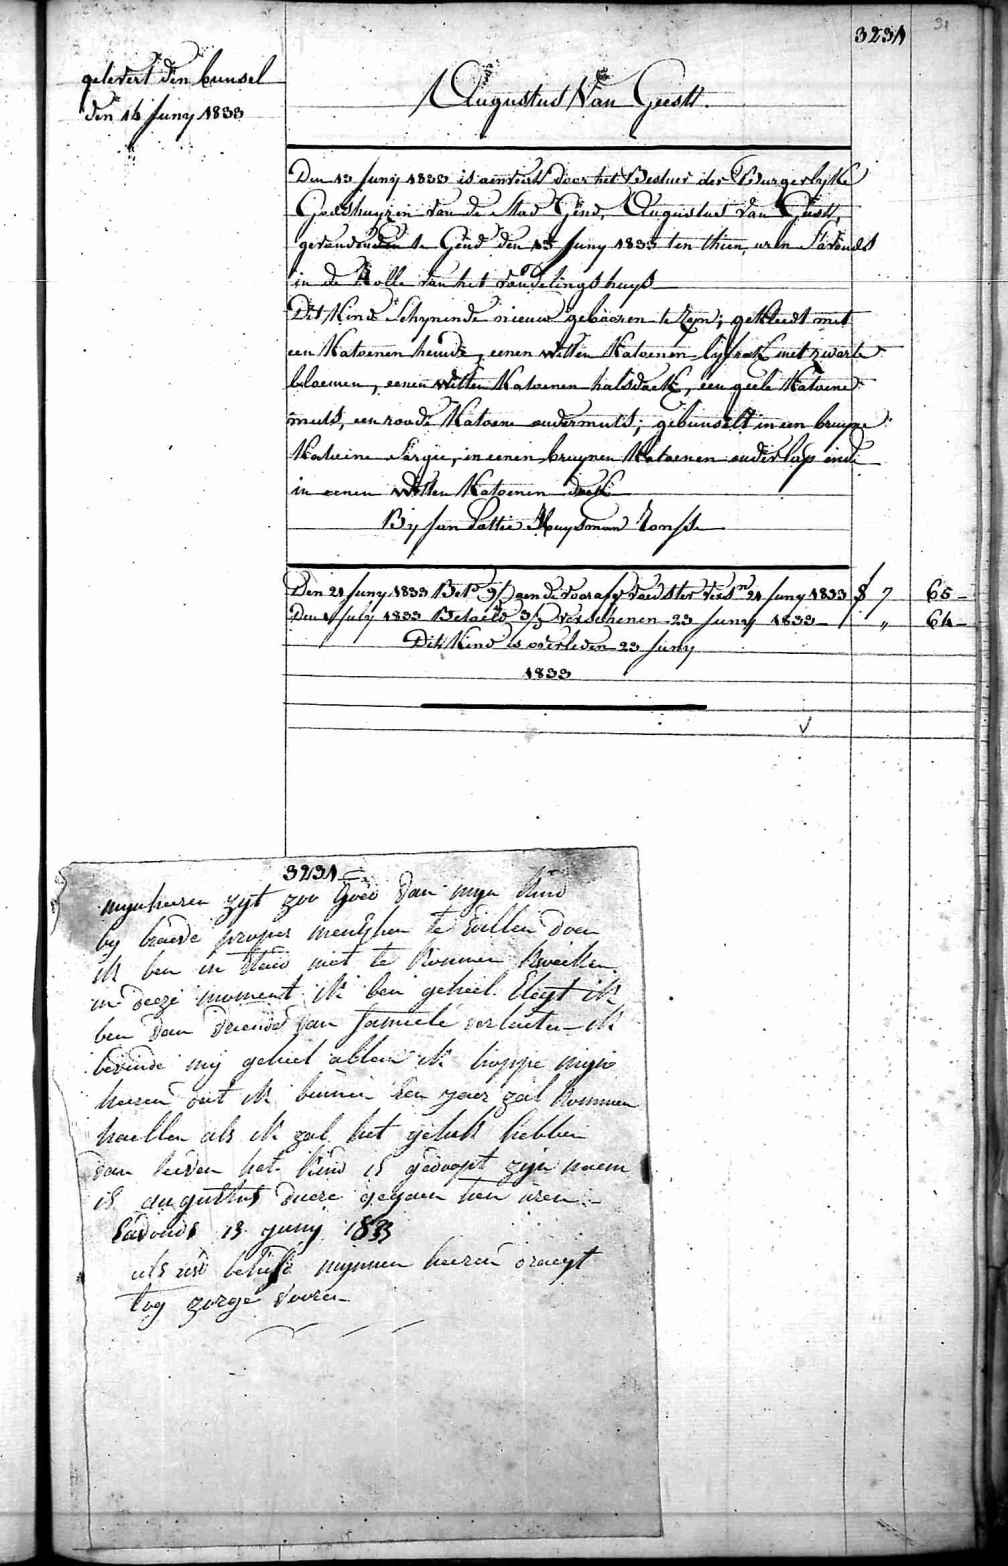 31
3231
gelevert den bunsel
den 14 Juny 1833
Augustus Van Geest.
Den 13 Juny 1833 is aenveert door het Bestuer der Burgerlyke
Godshuyzen van de Stad Gend, Augustus Van Geest,
gevonden te Gend den 13 Juny 1833 ten thien uren s'avonds
in de Rolle van het vondelingshuys
Dit Kind schynende nieuw gebooren te zyn; gekleedt met
een Katoenen hemde, eenen witten Katoenen lyfrok met zwarte
bloemen, eenen witten Katoenen halsdoek, een geele Katoene
muts, een roode Katoene ondermuts; gebunselt in een bruyne
Katoeine Sargie, in eenen bruynen Katoenen onderlap ende
in eenen witten Katoenen doek
By Jan Huysman Ronsse
Den 21 Juny 1833 Bet. aen de voorasg voedster 21 Juny 1833 7 65
Den July 1833 Betaeld verschenen 23 Juny 1833 " 64
Dit Kind is overleden 23 Juny
1833
3231
mynheeren zyt zoo Goed van myn Kind
by braede propes menschen te willen doen
ik ben in staed niet te konnen kweeken
in deeze moment ik ben geheel ik
ben van vriend van familie verlaeten ik
bevinde my geheel alleen ik hoppe myn
heeren dat ik binnen een jaer zal kommen
haellen als ik zal het geluk hebben
van leeven het kind is gedoopt zyn naem
is augustus gegaen tien uren
Savonds 13 juny 1833
als uw belieft mynnen heeren draegt
tog zorge vooren